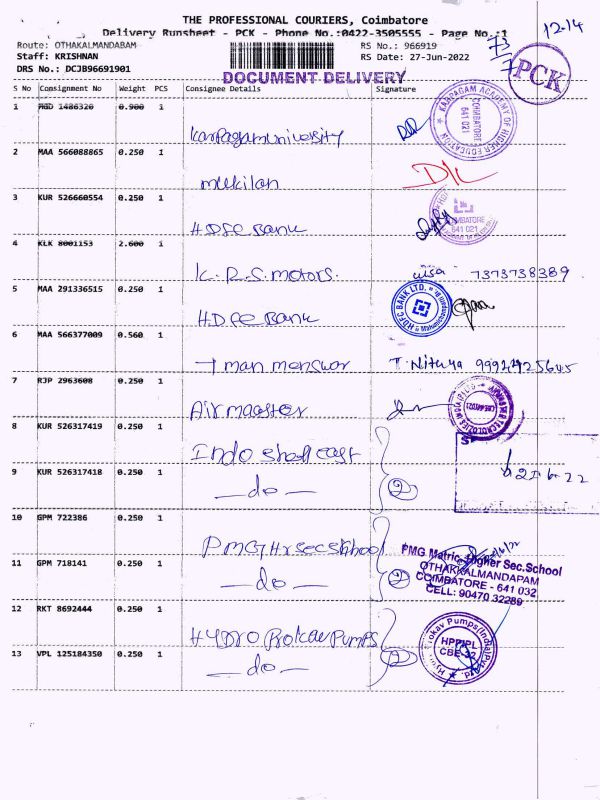 THE PROFESSIONAL COURIERS, Coimbatore
Delivery Runsheet - PCK - Phone No.:0422-3505555 - Page No.:1
12-14
73
Route: OTHAKALMANDABAM
RS No.: 966919
Staff: KRISHNAN
RS Date: 27-Jun-2022
DRS No.: DCJB96691901
DOCUMENT DELIVERY
PCK
S No Consignment No Weight PCS Consignee Details Signature
1 MGD 1486320 0.900 1
Karpagam university
KARPAGAM ACADEMY OF HIGHER EDUCATION
COIMBATORE
641 021
2 MAA 566088865 0.250 1
mukilan
3 KUR 526660554 0.250 1
HDFC Bank
641 021
4 KLK 8001153 2.600 1
K.R.S. motors. 7373738389
5 MAA 291336515 0.250 1
HDFC Bank
HDFC BANK LTD.
6 MAA 566377009 0.560 1
T. Nithya
7 RJP 2963608 0.250 1
Airmaster
8 KUR 526317419 0.250 1
Indo shell cast
9 KUR 526317418 0.250 1
-do- 2
10 GPM 722386 0.250 1
PMG Hr sec school
PMG Matric. Higher Sec.School
OTHAKKALMANDAPAM
COIMBATORE - 641 032
CELL: 90470 32289
11 GPM 718141 0.250 1
-do- 2
12 RKT 8692444 0.250 1
HYDRO Prokav Pumps
HPPIPL
CBE-32
13 VPL 125184350 0.250 1
-do- 2